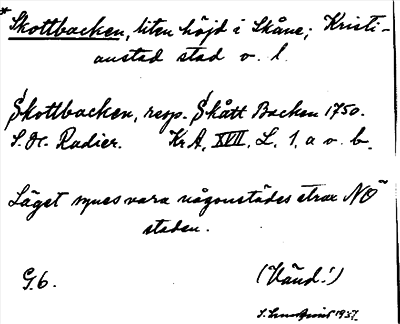 *Skottbacken, liten höjd i Skåne; Kristi-
anstad stad o. l.
Skottbacken, resp. Skått Backen 1750.
S. Radier. Kr A, XVII, L. 1, a o. b.
Läget synes vara någonstädes strax NO
staden.
G.6.
(Vänd!)
1937.